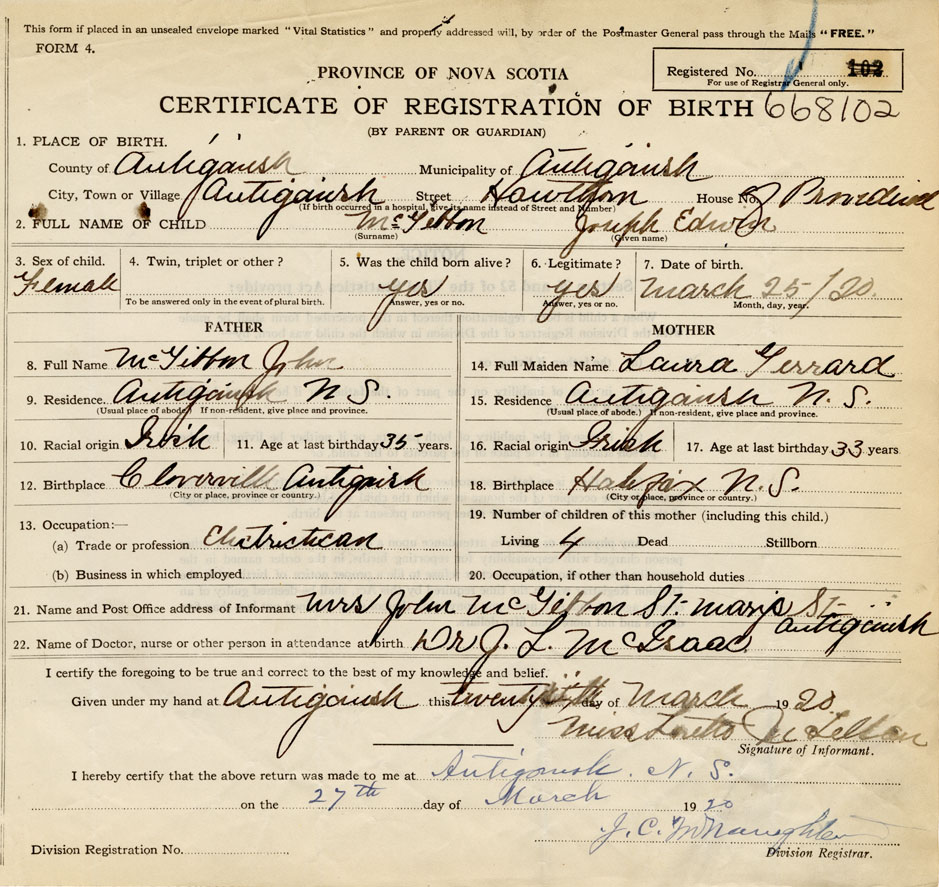 This form if placed in an unsealed envelope marked "Vital Statistics" and properly addressed will, by order of the Postmaster General pass through the Mails "FREE."
FORM 4.
PROVINCE OF NOVA SCOTIA
Registered No. 102
For use of Registrar General only.
CERTIFICATE OF REGISTRATION OF BIRTH 668102
(BY PARENT OR GUARDIAN)
1. PLACE OF BIRTH.
County of Antigonish Municipality of Antigonish
City, Town or Village Antigonish Street Hawthorn House No.
(If birth occurred in a hospital, give its name instead of Street and Number)
2. FULL NAME OF CHILD McGibbon Joseph Edwin
(Surname) (Given name)
3. Sex of child. 4. Twin, triplet or other? 5. Was the child born alive? 6. Legitimate? 7. Date of birth.
Female yes yes March 25/20.
To be answered only in the event of plural birth. Answer, yes or no. Answer, yes or no. Month, day, year.
FATHER MOTHER
8. Full Name McGibbon John 14. Full Maiden Name Laura Gerrard
9. Residence Antigonish N S. 15. Residence Antigonish N. S.
(Usual place of abode) If non-resident, give place and province. (Usual place of abode.) If non-resident, give place and province.
10. Racial origin Irish 11. Age at last birthday 35 years. 16. Racial origin Irish 17. Age at last birthday 33 years
12. Birthplace Cloverville Antigonish 18. Birthplace Halifax N. S.
(City or place, province or country.) (City or place, province or country.)
13. Occupation:— 19. Number of children of this mother (including this child.)
(a) Trade or profession Electrician Living 4 Dead Stillborn
(b) Business in which employed 20. Occupation, if other than household duties
21. Name and Post Office address of Informant Mrs John McGibbon St. Marys St- Antigonish
22. Name of Doctor, nurse or other person in attendance at birth Dr J. L. McIsaac
I certify the foregoing to be true and correct to the best of my knowledge and belief.
Given under my hand at Antigonish this day of March 1920.
Miss Loretto
Signature of Informant.
I hereby certify that the above return was made to me at Antigonish. N. S.
on the 27th day of March 1920
J. C. McNaughton
Division Registrar.
Division Registration No.